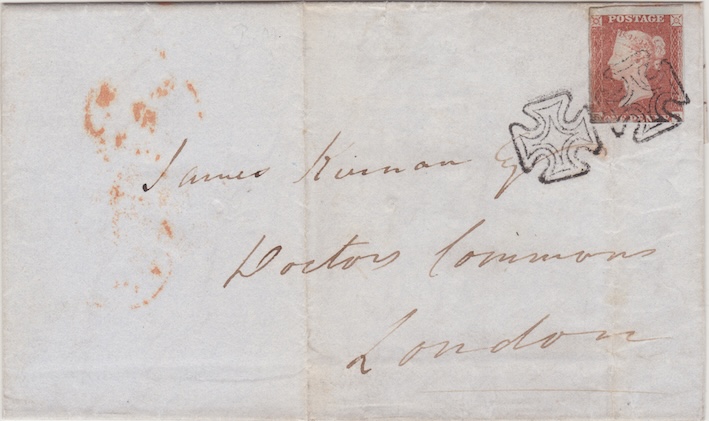 POSTAGE
James Kiernan Esq
Doctors Commons
London